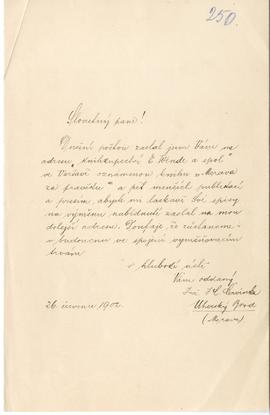 250.
Slovutný pane!
Dnešní poštou zaslal jsem Vám na
adresu „Knihkupectví E. Wende a spol"
ve Varšavě oznámenou knihu „Morava
za pravěku" a pět menších publikací
a prosím, abyste mi laskavě Své spisy
na výměnu nabídnuté zaslal na mou
dolejší adresu. Doufaje, že zůstaneme
v budoucnu ve spojení
trvám
v hluboké úctě
Vám oddaný
I. L. Červinka
Uherský Brod
(Morava)
26 června 1902.